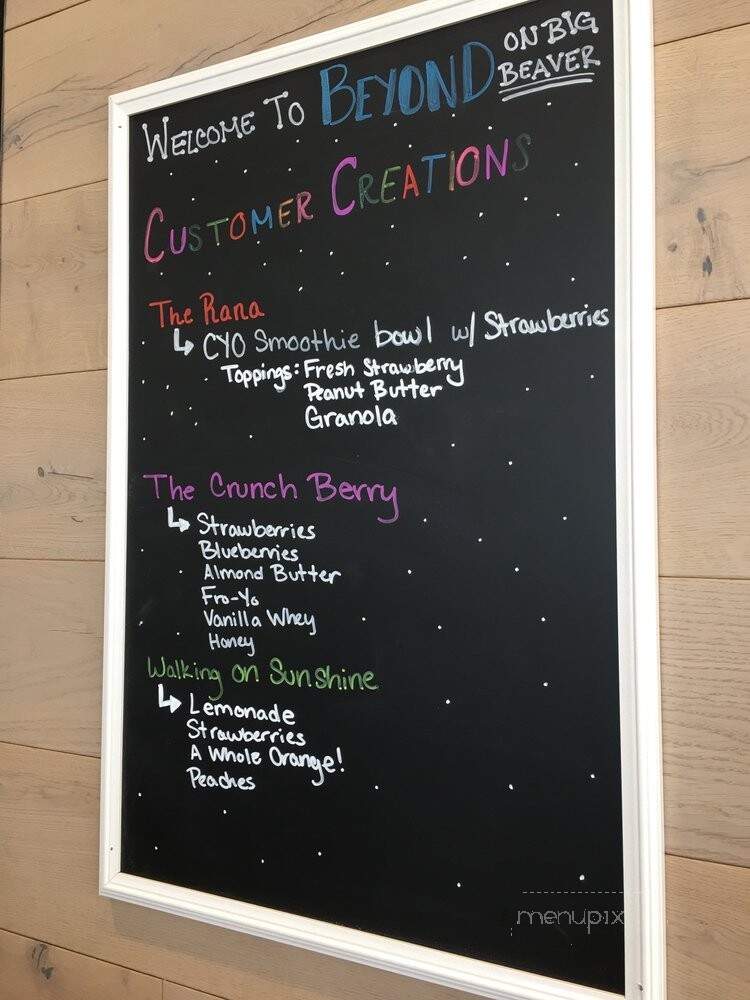 WELCOME TO BEYOND ON BIG BEAVER
CUSTOMER CREATIONS
The Rana
CYO Smoothie bowl w/ Strawberries
Toppings: Fresh Strawberry
Peanut Butter
Granola
The Crunch Berry
Strawberries
Blueberries
Almond Butter
Fro-Yo
Vanilla Whey
Honey
Walking on Sunshine
Lemonade
Strawberries
A Whole Orange!
Peaches
menupix